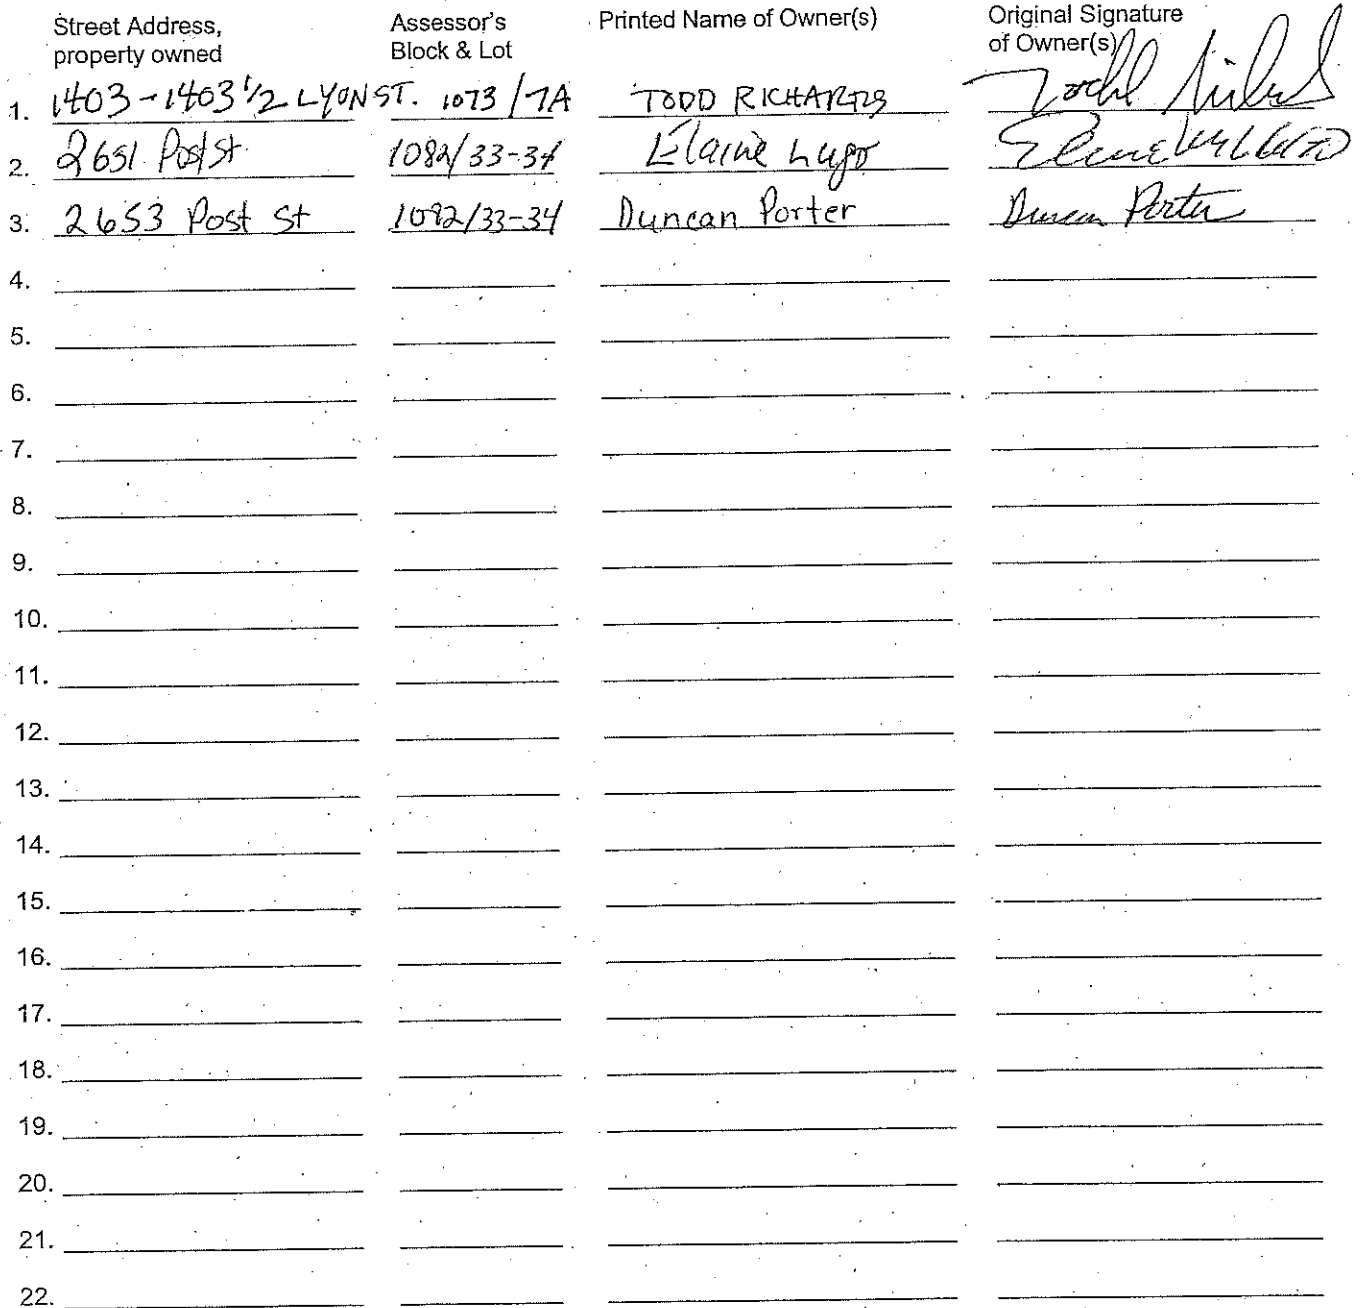 Street Address, property owned Assessor's Block & Lot Printed Name of Owner(s) Original Signature of Owner(s)
1. 1403-1403 1/2 LYON ST. 1073/7A TODD RICHARDS
2. 2651 Post St 1082/33-34 Elaine Lugo
3. 2653 Post St 1082/33-34 Duncan Porter Duncan Porter
4.
5.
6.
7.
8.
9.
10.
11.
12.
13.
14.
15.
16.
17.
18.
19.
20.
21.
22.